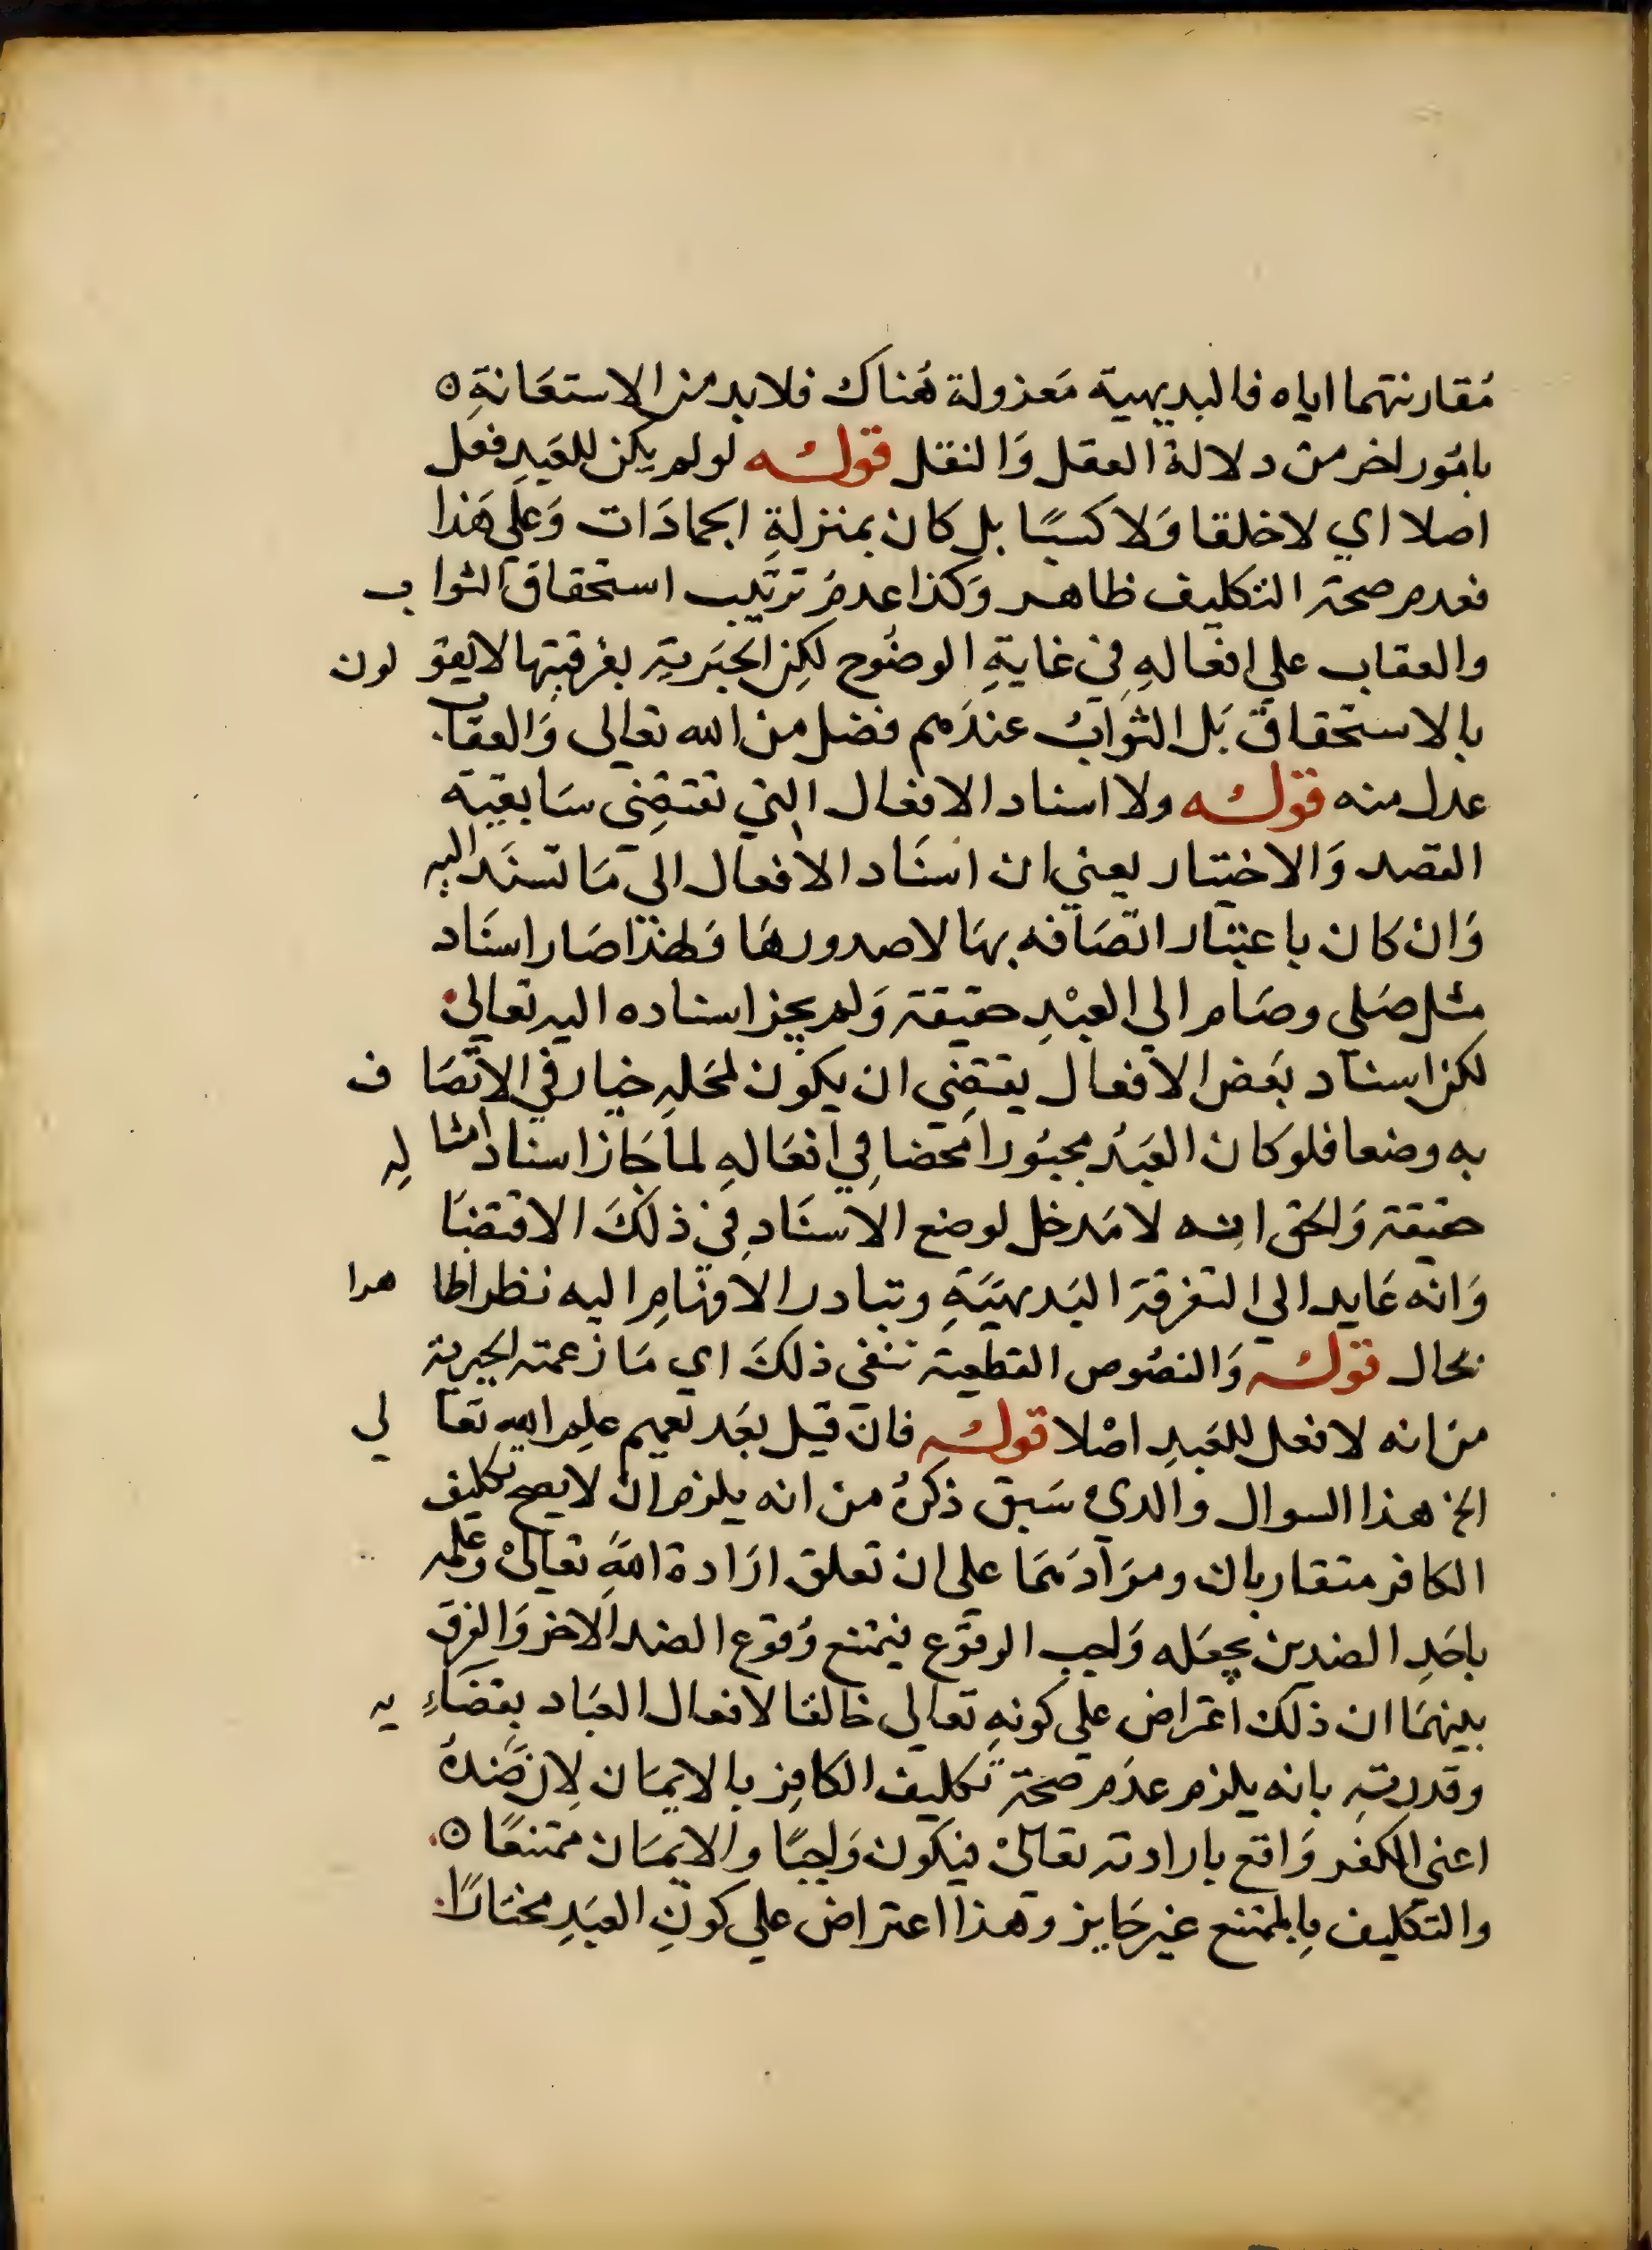 مُقارنتهما اياه فالبديهية مَعزولة هُناك فلابد من الاستعَانةِ ٥
بامُور اخر من دلالة العقل وَالنقل قوله لولم يكن للعَبدِ فعل
اصلا اي لا خلقا وَلا كسبًا بل كان بمنزلةِ الجمادَات وَعلى هَذا
فعدم صحة التكليف ظاهر وَكذا عدمُ ترتيب استحقاق الثواب
والعقاب علي افعَالهِ في غايةِ الوضُوح لكِن الجبَرية بفرقيتها لا يقولون
بالاستحقاق بَل الثوَابُ عندَهم فضل من الله تعالى وَالعقاب
عدل منه قوله ولا اسناد الافعال التي تقتضِي سَابقية
القصد وَالاختيار يعني ان اسنَاد الافعال الى مَا تسنَد اليه
وَان كان باعتبار اتصَافه بهَا لا صدورهَا وَلهذا صَار اسنَاد
مثل صَلى وصَام الي العبْدِ حقيقة وَلم يجز اسناده اليه تعالىٰ
لكن اسناد بعَض الافعال يقتضِي ان يكون لمحَلهِ خيار في الاتصَاف
به وضعا فلو كان العَبدُ مجبُورا محَضا فِي افعَالهِ لما جَاز اسناد امثاله
حقيقة وَالحق انه لا مَدخل لوضع الاسنَادِ فِي ذلكَ الاقتضَا
وَانه عَايد الي التفرقة البَديهيَّةِ وتبادرِ الاوهَامِ اليه نظرا لظاهر
الحال قوله وَالنصُوص القطعية تنفى ذلكَ اي مَا زعمته الجبرية
من انه لا فعل للعَبدِ اصْلا قوله فان قيل بعَد تعميم علم الله تعالي
الخ هذا السوال والذي سَبق ذكرُه من انه يلزم ان لا يصح تكليف
الكافر متقاربان ومرَادهمَا على ان تعلق ارَادة اللهِ تعالىٰ وَعلمه
باحَدِ الضدين يجعَله وَاجب الوقوُع فيمتنع وُقوع الضد الآخر وَالفرق
بينهمَا ان ذلك اعتراض علي كونهِ تعالي خالقا لافعال العبَاد بقضَاءِيه
وقدرتهِ بانه يلزم عدَم صحة تكليف الكافِر بالايمان لان ضدهُ
اعني الكفر وَاقع بارادته تعالىٰ فيكون وَاجبًا والايمَان ممتنعًا ٥
والتكليف بِالممتنع غير جَايز وهذا اعتراض علي كونِ العبَدِ مختارًا